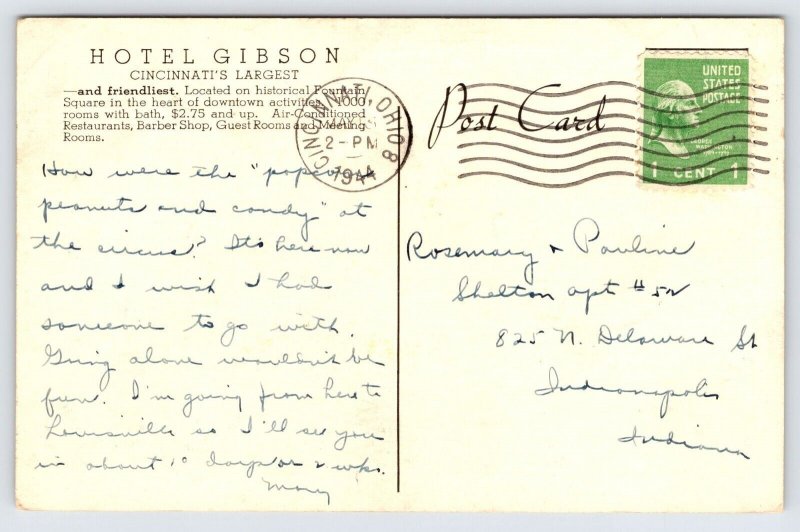 HOTEL GIBSON
CINCINNATI'S LARGEST
—and friendliest. Located on historical Fountain
Square in the heart of downtown activities. 1000
rooms with bath, $2.75 and up. Air-Conditioned
Restaurants, Barber Shop, Guest Rooms and Meeting
Rooms.
CINCINNATI, OHIO 8
MAY
2-PM
1944
Post Card
UNITED
STATES
POSTAGE
GEORGE
WASHINGTON
1789-1797
1 CENT 1
How were the "popcorn
peanuts and candy" at
the circus? It's here now
and I wish I had
someone to go with.
Going alone wouldn't be
fun. I'm going from here to
Louisville so I'll see you
in about 10 days or 2 wks.
Mary
Rosemary + Pauline
Shelton apt #52
825 N. Delaware St
Indianapolis
Indiana